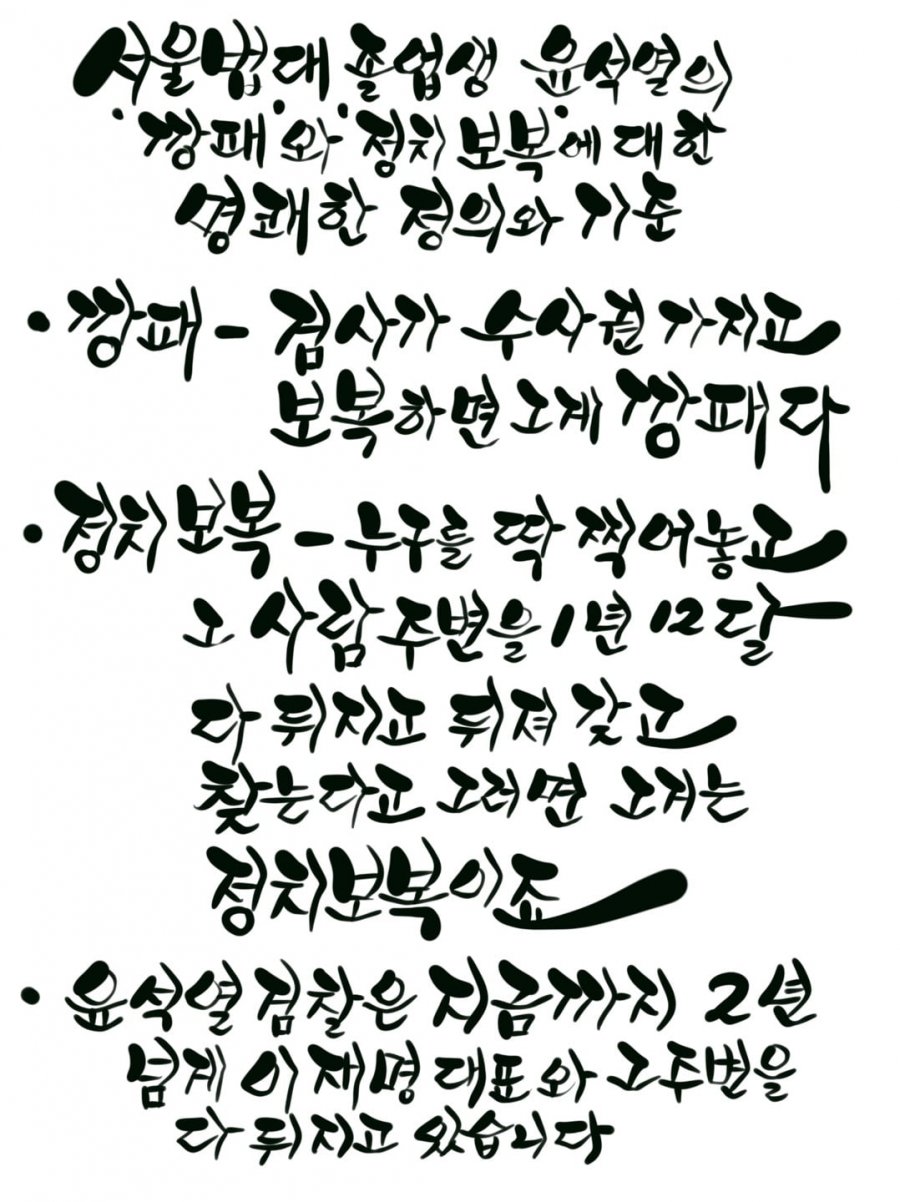 서울법대 졸업생 윤석열의
'깡패'와 '정치보복'에 대한
명쾌한 정의와 기준
• 깡패 - 검사가 수사권 가지고
보복하면 그게 깡패다
• 정치보복 - 누구를 딱 찍어놓고
그 사람 주변을 1년 12달
다 뒤지고 뒤져 갖고
찾는다고 그러면 그거는
정치보복이죠
• 윤석열 검찰은 지금까지 2년
넘게 이재명 대표와 그 주변을
다 뒤지고 있습니다